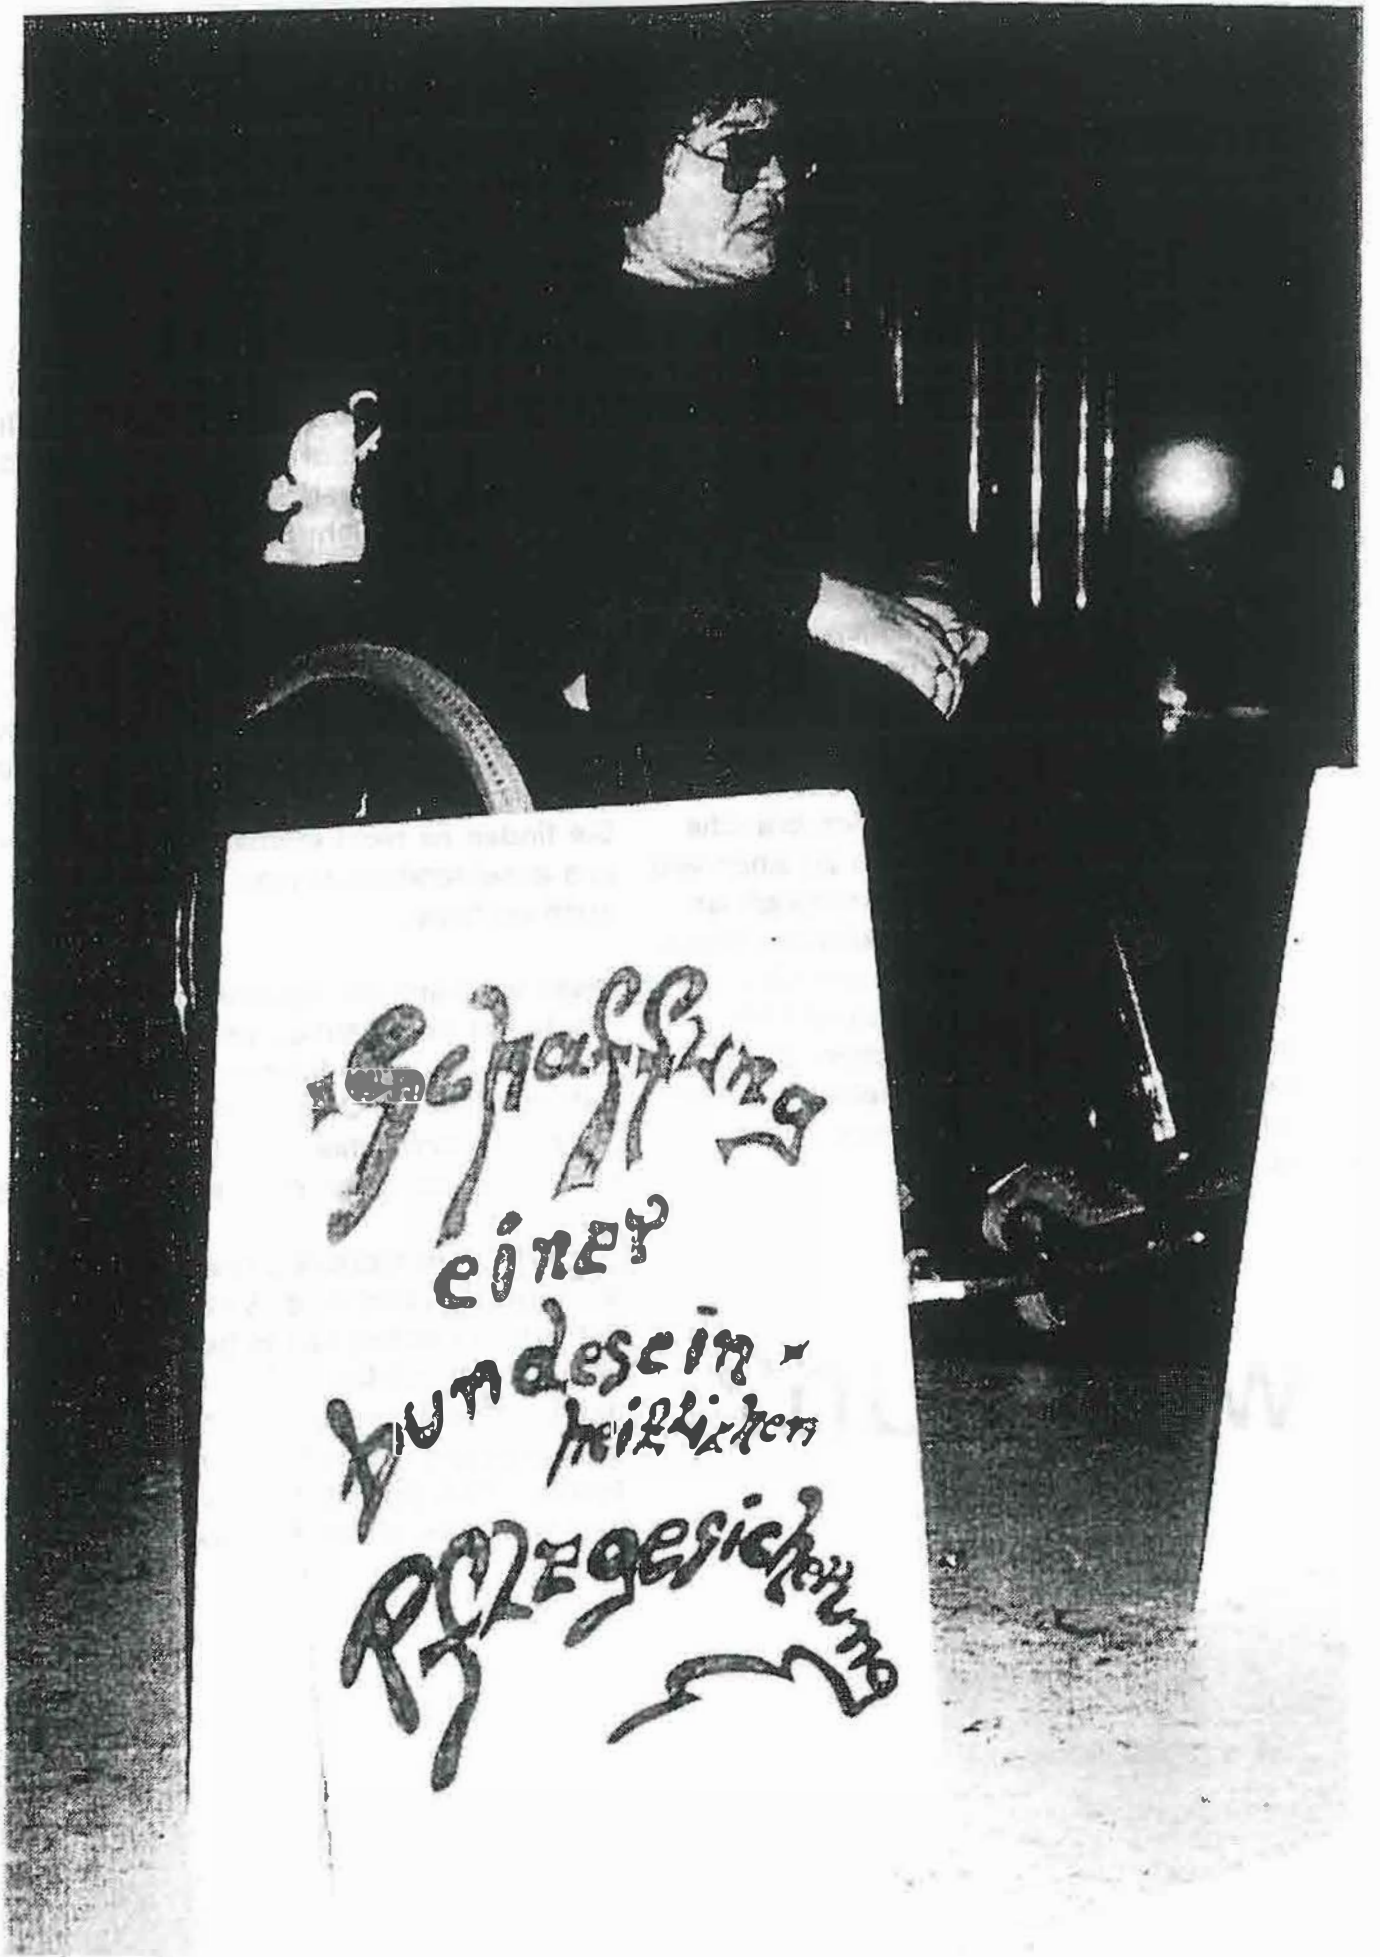 Schaffung
einer
bundesein-
heitlichen
Pflegesicherung